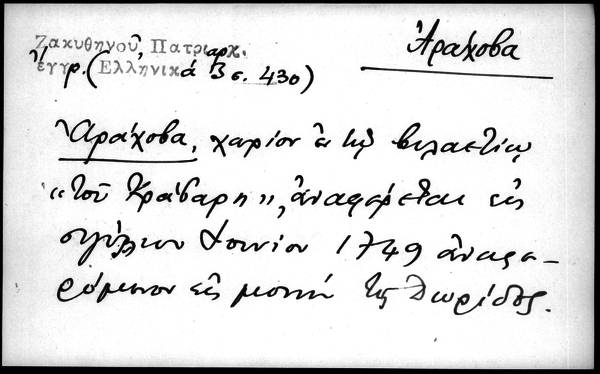 Ἀράχοβα
Ζακυθηνοῦ, Πατριαρχ.
ἔγγρ. (Ἑλληνικά 3 σ. 430)
Ἀράχοβα, χωρίον ἐν τῷ βιλαετίῳ
"τοῦ Κράβαρη", ἀναφέρεται εἰς
σιγίλλιον Ἰουνίου 1749 ἀναφε-
ρόμενον εἰς μονὴν τῆς Δωρίδος.